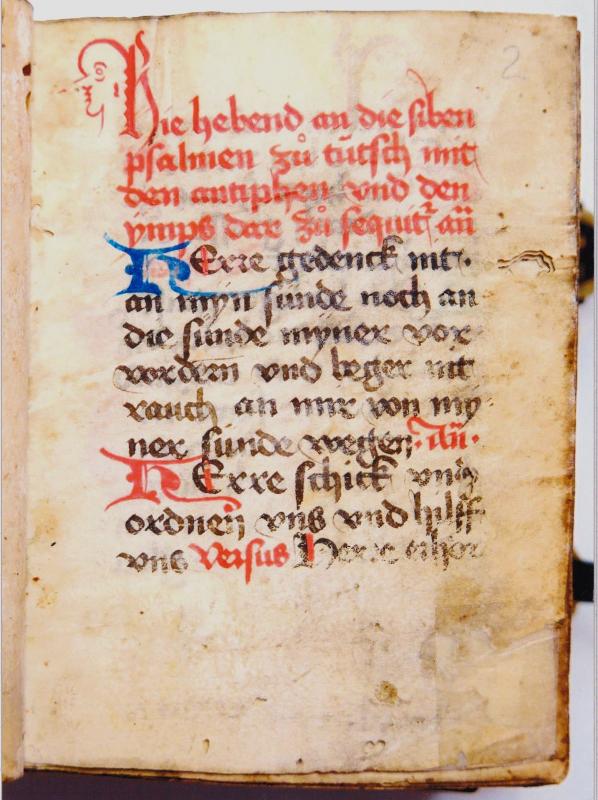 2
Hie hebend an die siben
psalmen zuͦ tütsch mit
den antiphen vnd den
ymps dar zuͦ sequitʳ añ
HErre gedenck nit
an myn sünde noch an
die sünde myner vor
vordern̄ vnd beger nit
rauch an mir von my
ner sünde wegen · Añ ·
HErre schick vnd
ordnen vns vnd hilff
vns Versus Herre erhör